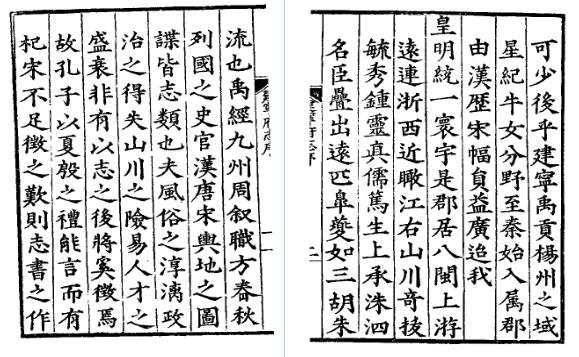 流也禹經九州周叙職方春秋
列國之史官漢唐宋輿地之圖
諜皆志類也夫風俗之淳漓政
治之得失山川之險易人才之
盛衰非有以志之後將奚徵焉
故孔子以夏殷之禮能言而有
杞宋不足徵之歎則志書之作
可少後乎建寧禹貢楊州之域
星紀牛女分野至秦始入属郡
由漢歴宋幅員益廣迨我
皇明統一寰宇是郡居八閩上游
遠連浙西近瞰江右山川竒㧞
毓秀鍾靈真儒篤生上承洙泗
名臣疊出遠匹臯夔如三胡朱